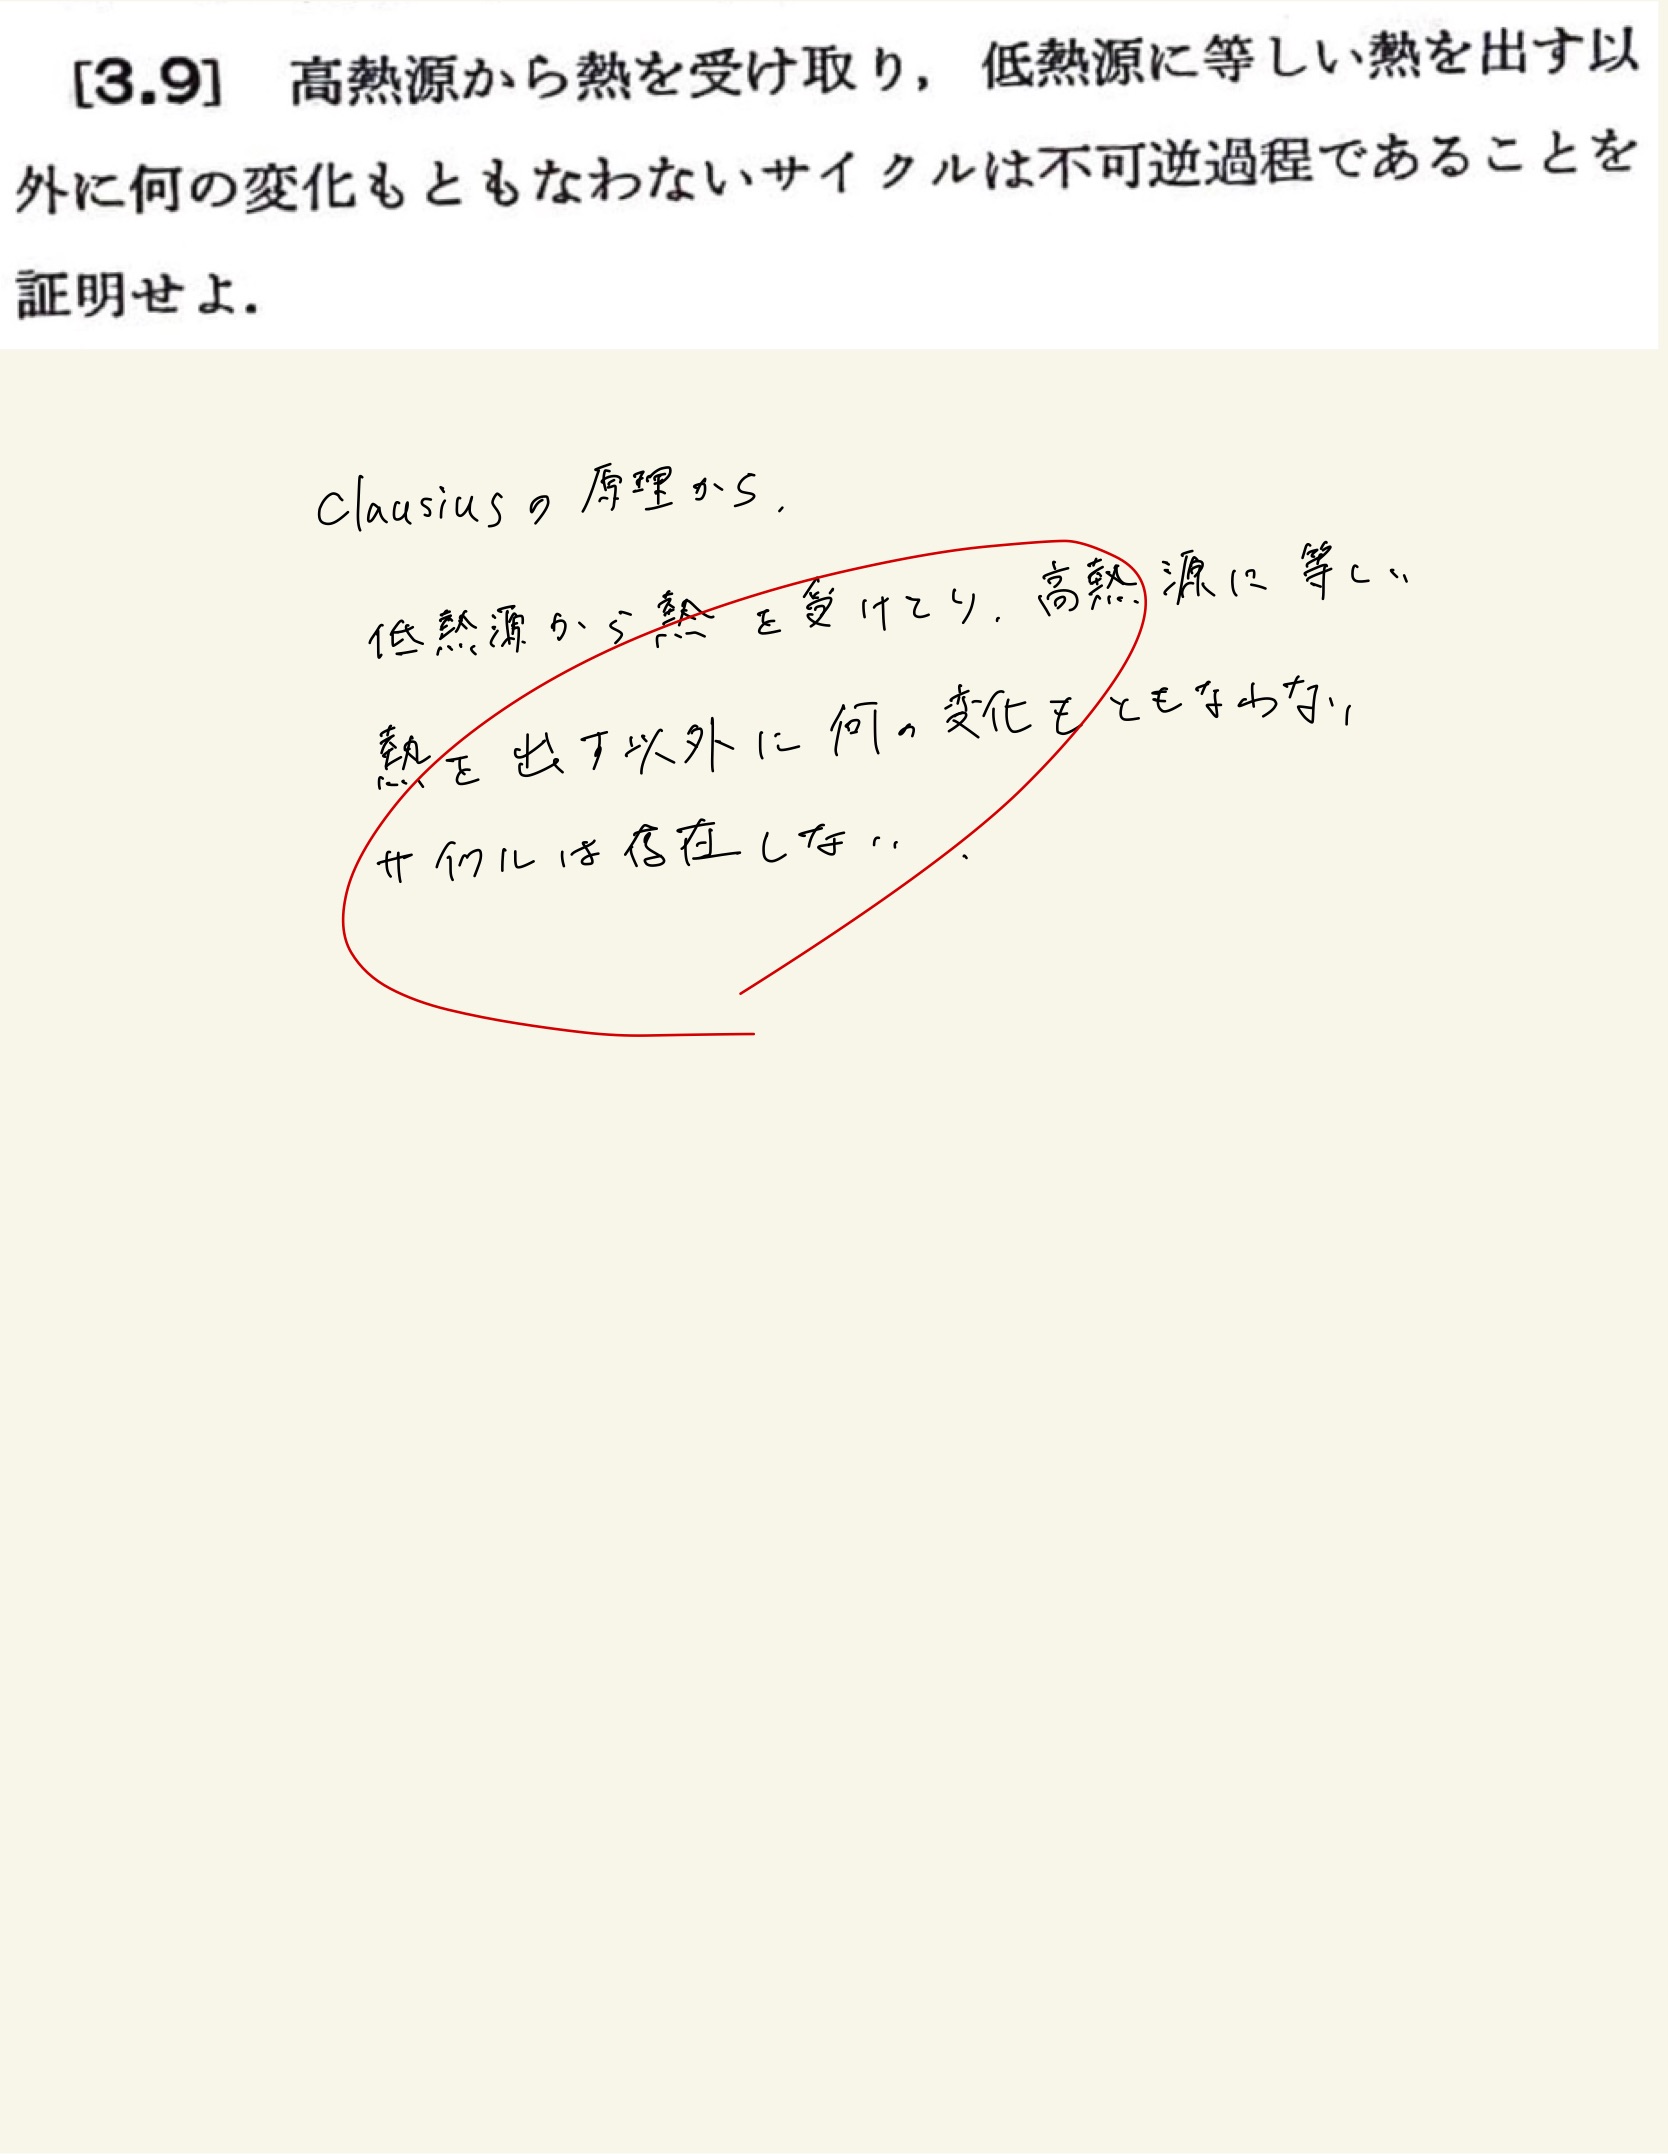 [3.9] 高熱源から熱を受け取り，低熱源に等しい熱を出す以
外に何の変化もともなわないサイクルは不可逆過程であることを
証明せよ．
Clausiusの原理から．
低熱源から熱を受けとり．高熱源に等しい
熱を出す以外に何の変化もともなわない
サイクルは存在しない．